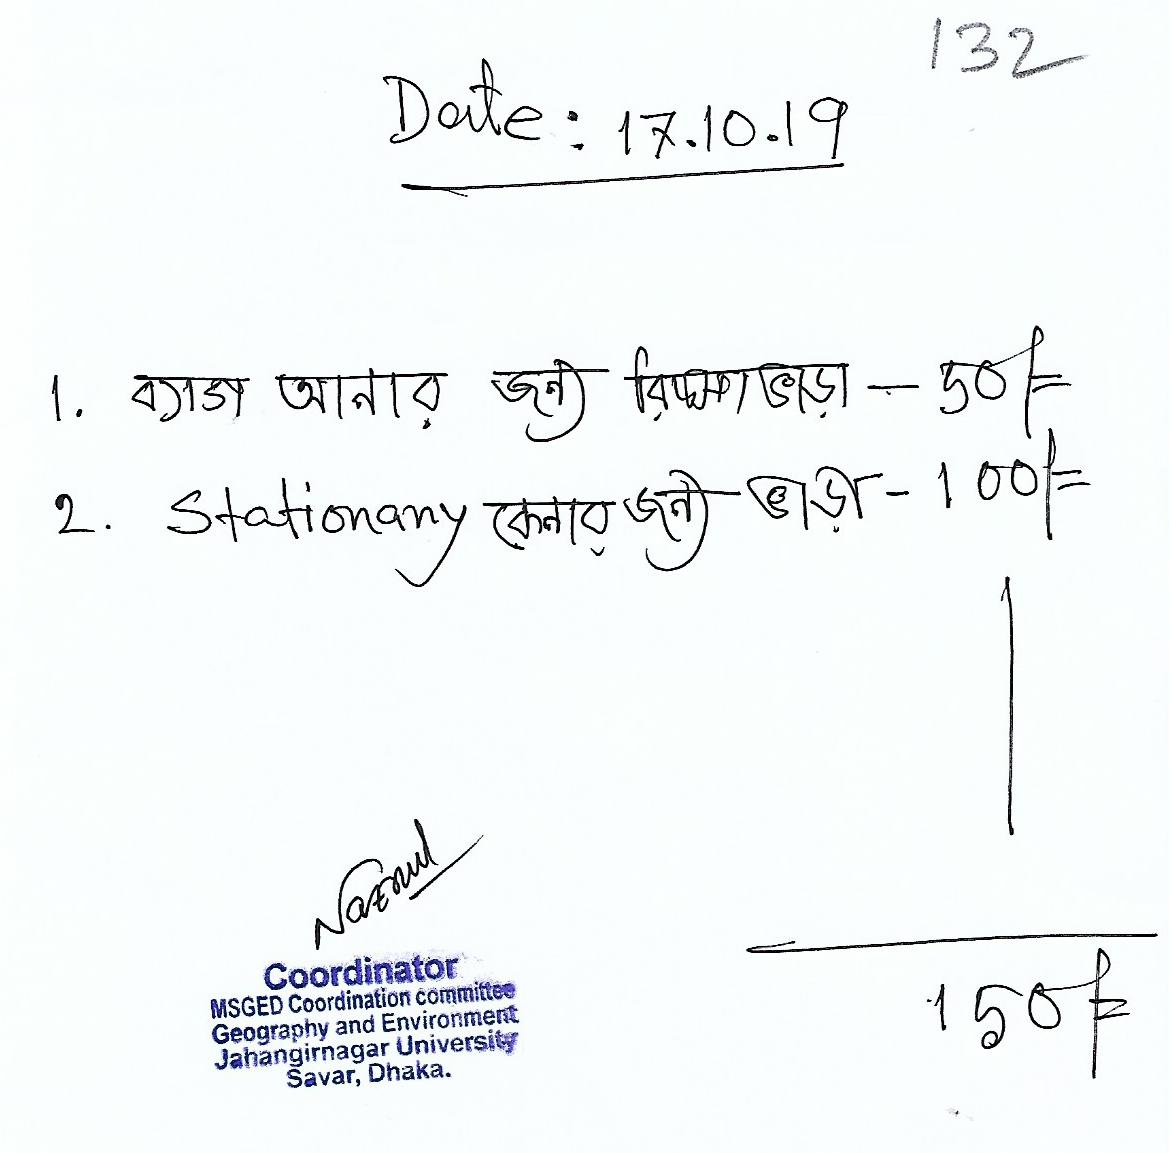 132
Date: 17.10.19
1. ব্যাজ আনার জন্য রিক্সা ভাড়া — 50/=
2. Stationany কেনার জন্য ভাড়া - 100/=
150/=
Nazmul
Coordinator
MSGED Coordination committee
Geography and Environment
Jahangirnagar University
Savar, Dhaka.